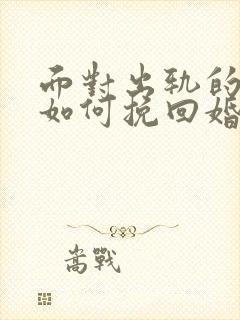 而對出軌的
如何挽回婚
嵩戰